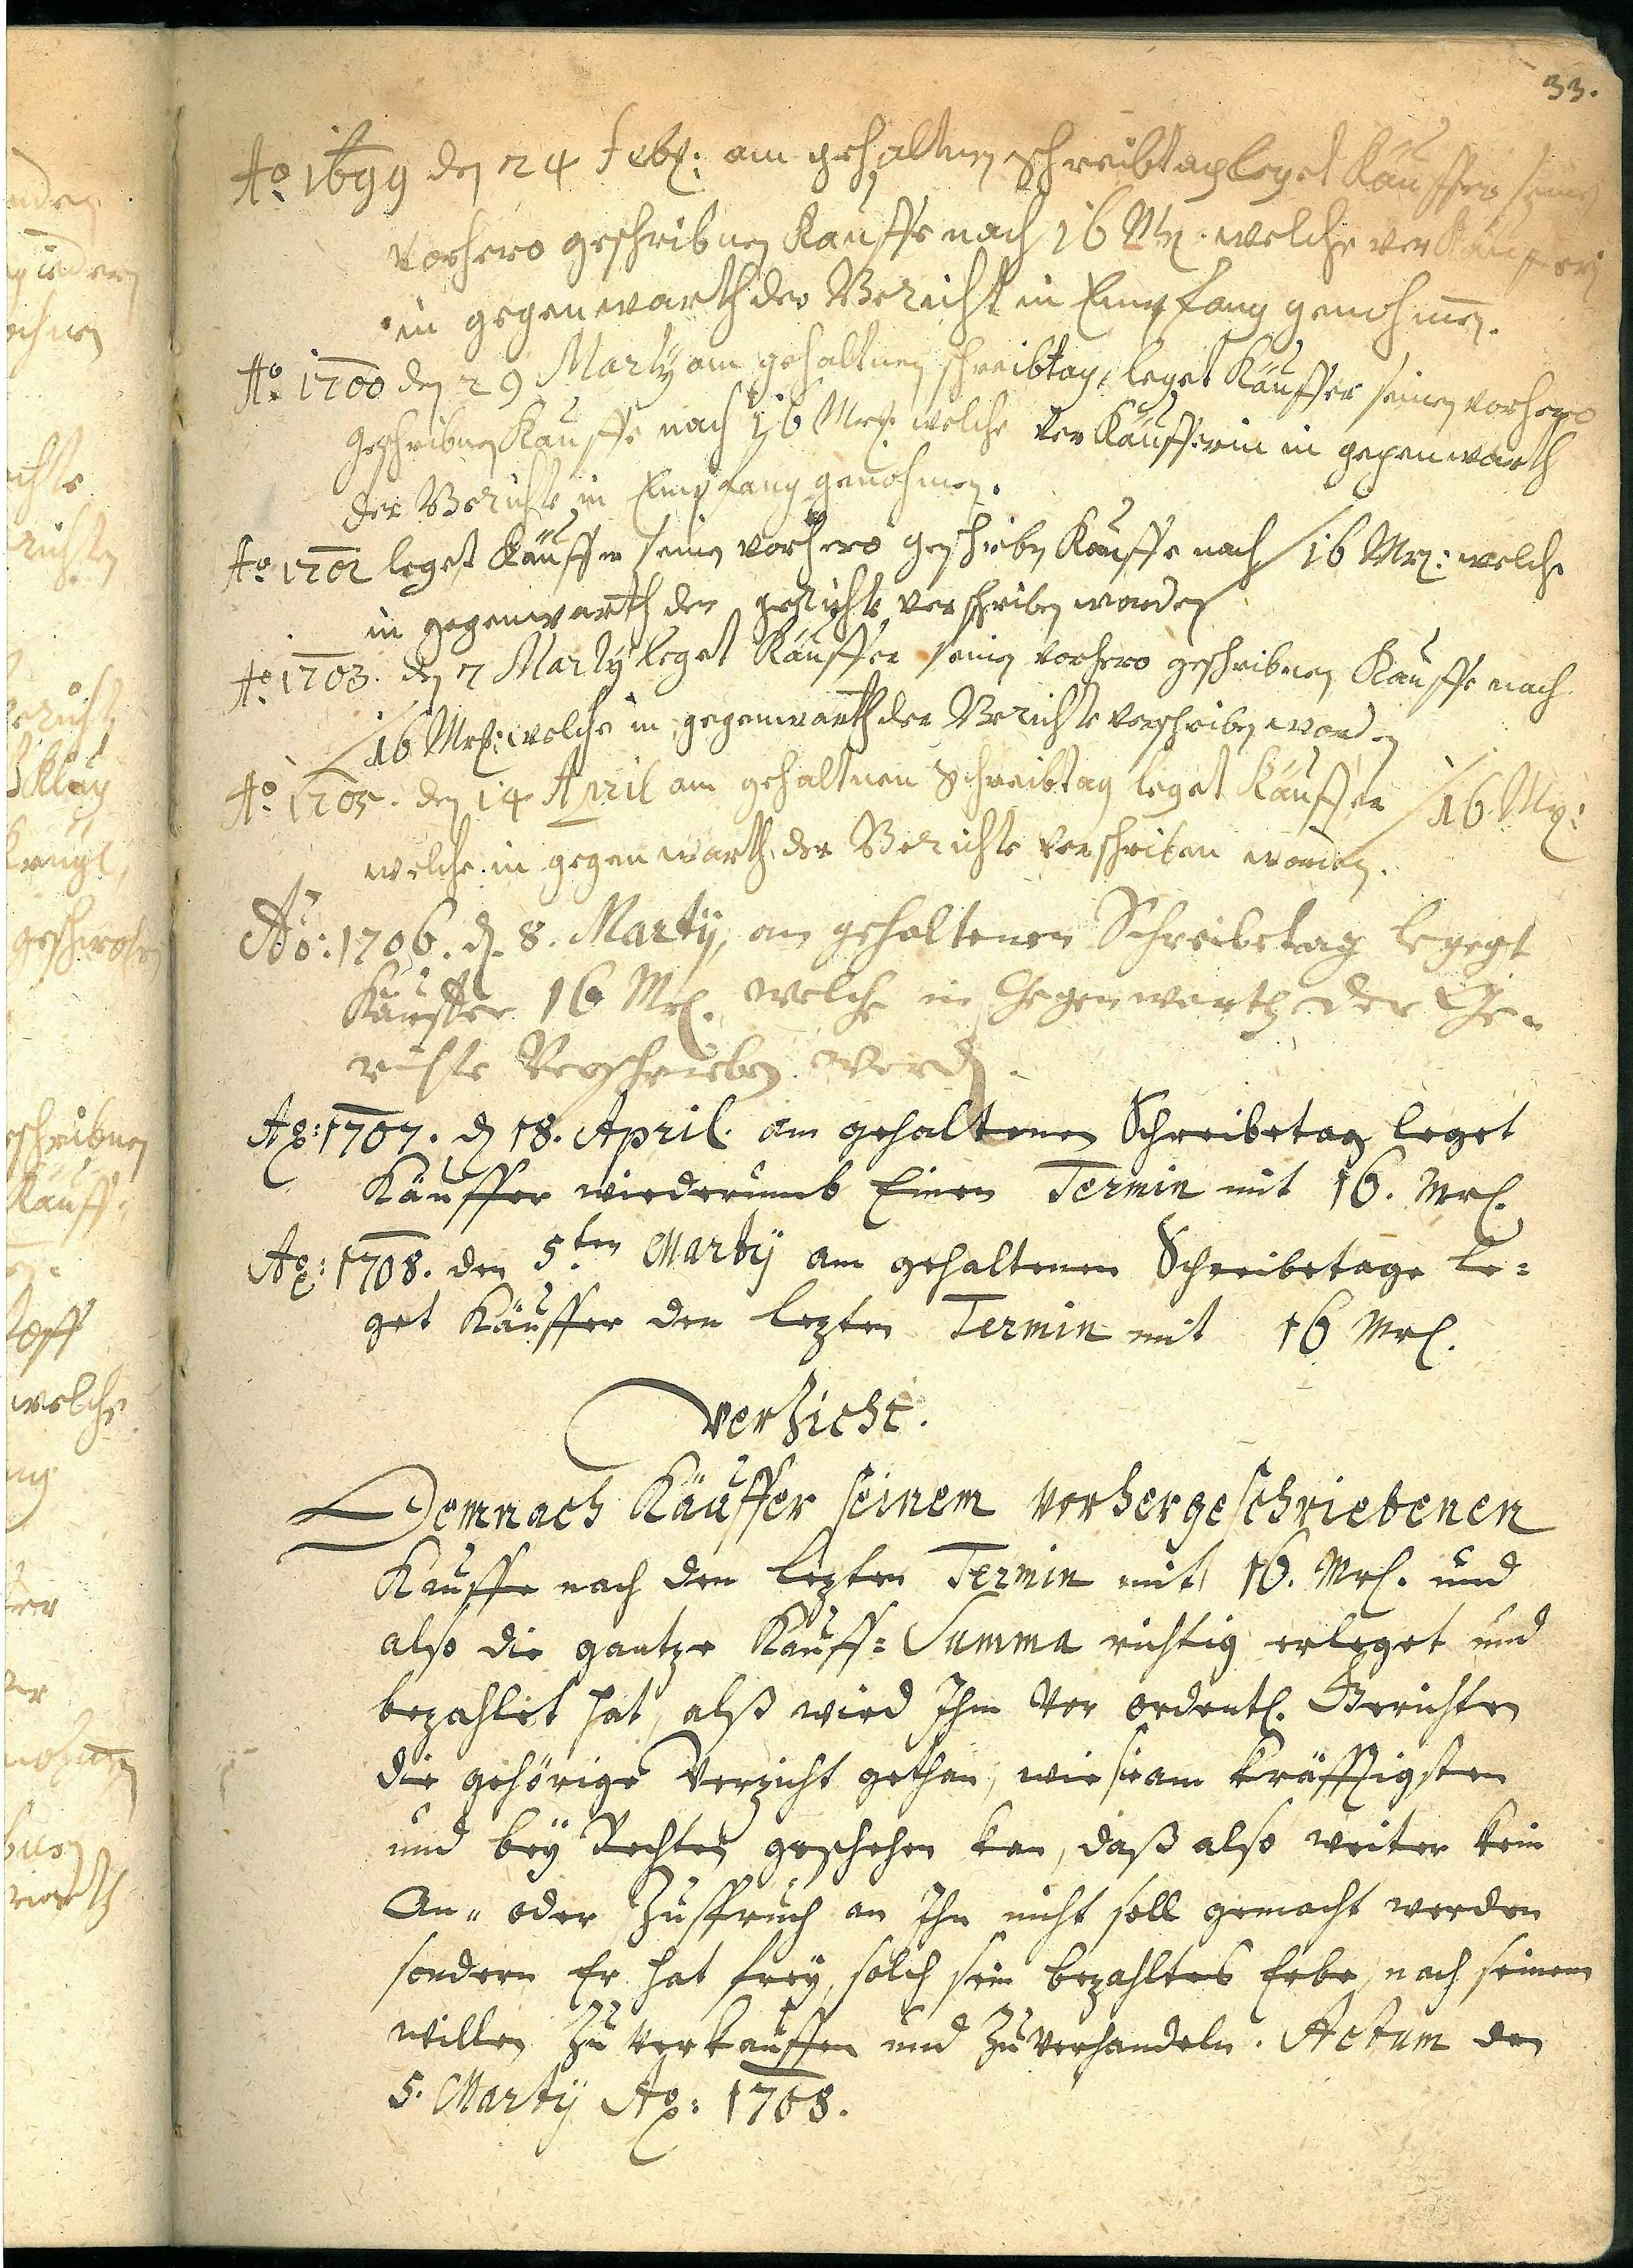 33.
Ao 1699 den 24 Febr: am gehaltnen schreibtag leget Käuffer seinen
vorhero geschribnen Kauffe nach 16 Mrk. welche verKäufferin
in gegenwarth der Gericht in Empfang genohmen.
Ao 1700 den 29 Marty am gehaltnen schreibtag, leget Käuffer seinen vorhero
geschribnen Kauffe nach 16 Mrk: welche verKäufferin in gegenwarth
der Gerichte in Empfang genohmen.
Ao 1702 leget Käuffer seinen vorhero geschriebn Kauffe nach 16 Mrk: welche
in gegenwarth der gerichte verschriben worden
Ao 1703. den 7 Marty leget Käuffer seinen vorhero geschribnen Kauffe nach
16 Mrk: welche in gegenwarth der Gerichte verschriben worden
Ao 1705. den 14 April am gehaltnen Schreibtag leget Käuffer 16 Mrk:
welche in gegenwarth der Gerichte verschriben worden.
Ao: 1706. d. 8. Martij, am gehaltenen Schreibetag legegt
Käuffer 16 Mrk. welche in Gegenwarth der Ge-
richte Verschrieben word.
Ao: 1707. d 18. April. am gehaltenen Schreibetag leget
Käuffer wiederumb Einen Termin mit 16. Mrk.
Ao: 1708. den 5ten Martij am gehaltenen Schreibetage le=
get Käuffer den lezten Termin mit 16 Mrk.
Verzicht.
Demnach Käuffer seinem vorhergeschriebenen
Kauffe nach den lezten Termin mit 16. Mrk. und
also die gantze Kauff=Summa richtig erleget und
bezahlet hat, alß wird Ihm vor ordentl. Gerichten
die gehörige Verzicht gethan, wie sie am kräfftigsten
und bey Rechten geschehen kan, daß also weiter kein
An„ oder Zuspruch an Ihn nicht soll gemacht werden
sondern Er hat frey, solch sein bezahltes Erbe, nach seinem
willen zu verkauffen und zuverhandeln. Actum den
5. Martij Ao: 1708.